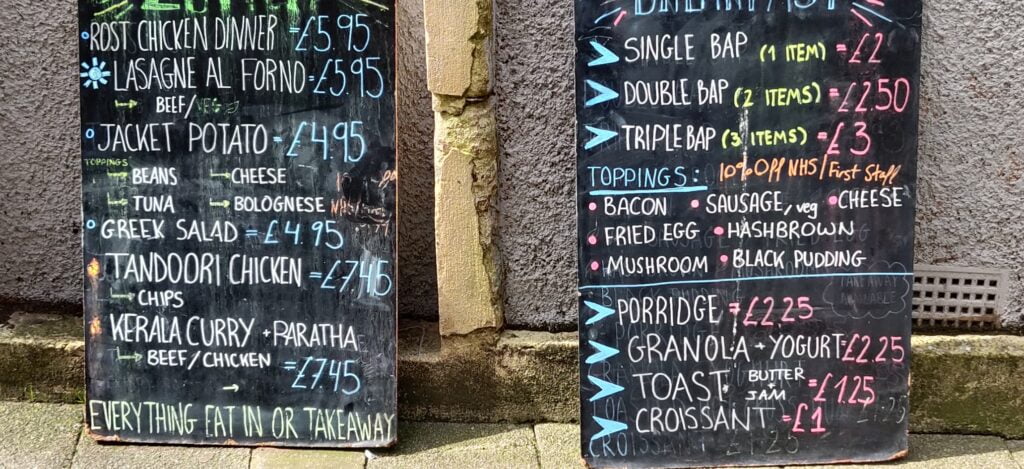 ROST CHICKEN DINNER =£5.95
LASAGNE AL FORNO=£5.95
→ BEEF/VEG
JACKET POTATO - £4.95
TOPPINGS
→ BEANS → CHEESE
→ TUNA → BOLOGNESE
GREEK SALAD = £4.95
TANDOORI CHICKEN =£7.45
→ CHIPS
KERALA CURRY + PARATHA
→ BEEF/CHICKEN =£7.45
→
EVERYTHING EAT IN OR TAKEAWAY
BREAKFAST
SINGLE BAP (1 ITEM) =£2
DOUBLE BAP (2 ITEMS) =£2.50
TRIPLE BAP (3 ITEMS) =£3
10% Off NHS/First Staff
TOPPINGS:
• BACON • SAUSAGE/veg • CHEESE
• FRIED EGG • HASHBROWN
• MUSHROOM • BLACK PUDDING
TAKEAWAY
AVAILABLE
PORRIDGE = £2.25
GRANOLA + YOGURT=£2.25
TOAST BUTTER + JAM =£1.25
CROISSANT =£1